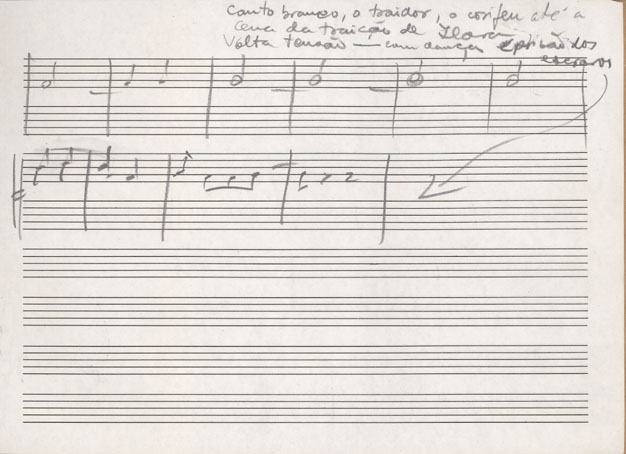 Canto branco, o traidor, o corifeu até a
cena da traição de Ilara
Volta tensão — com dança e prisão dos
escravos